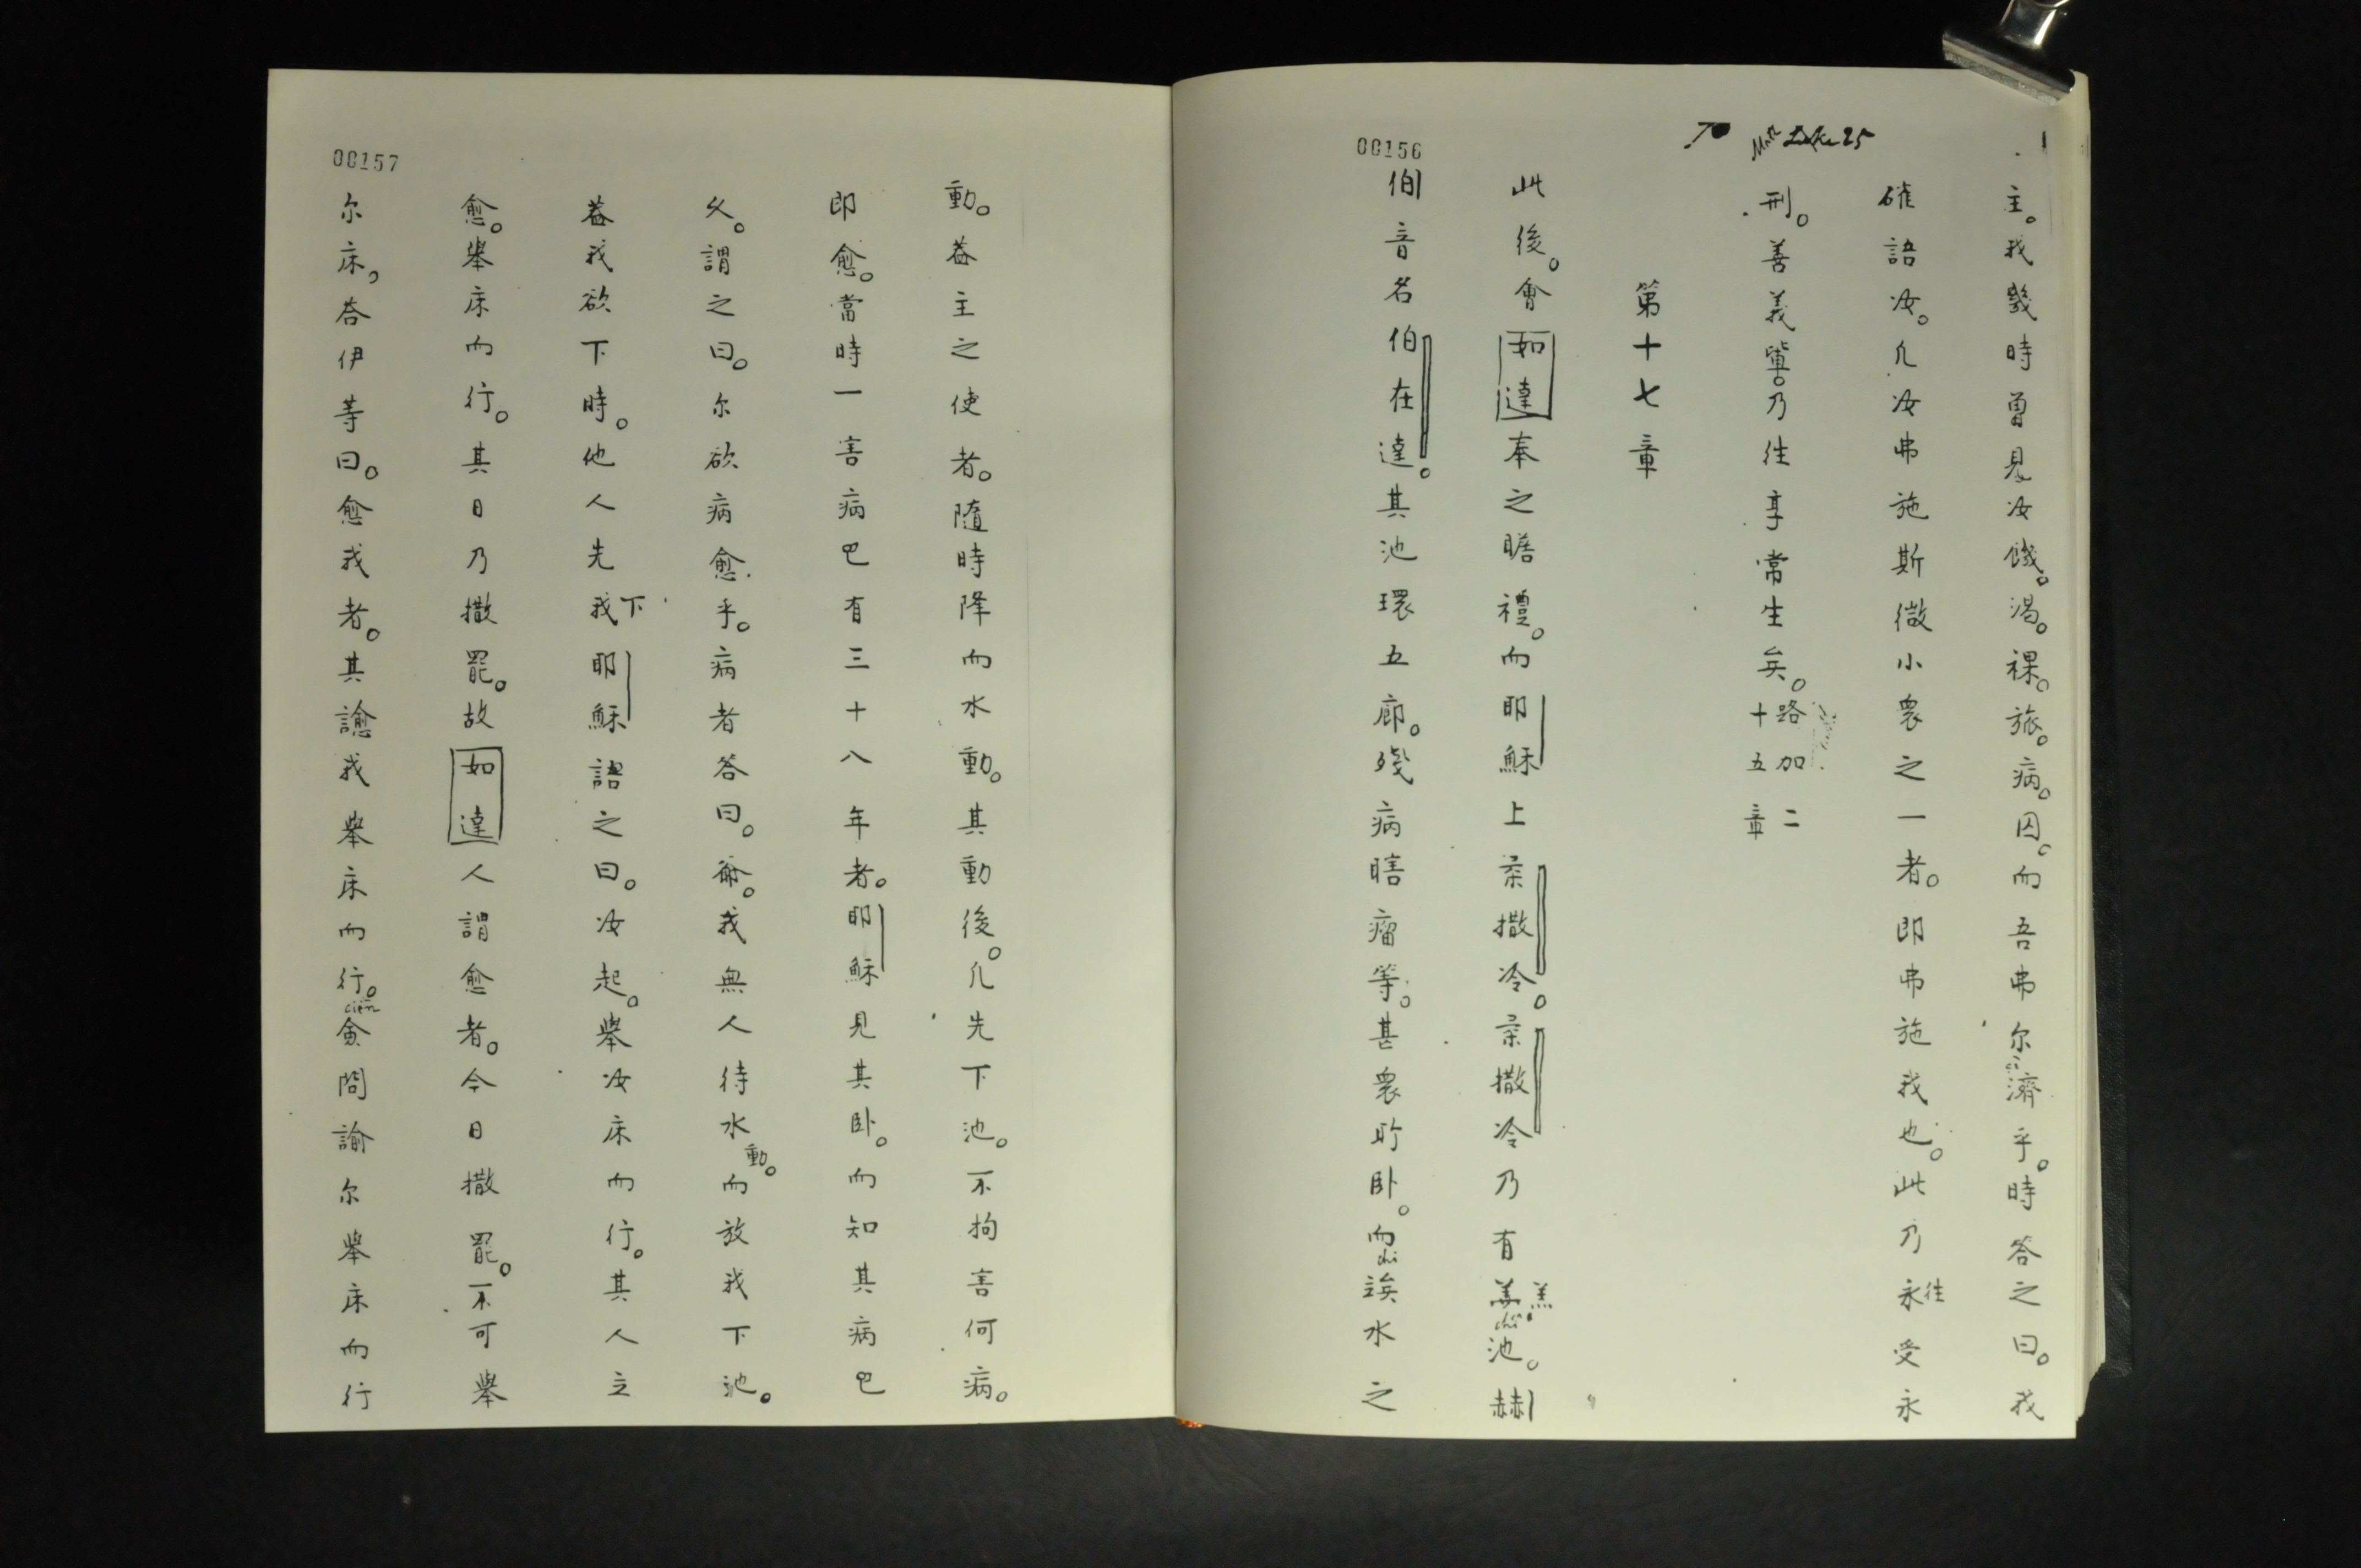 To Matt Luke 25
主。我幾時曾見汝餓。渴。裸。旅。病。囚。而吾弗尔濟乎。時答之曰。我
確語汝。凡汝弗施斯微小衆之一者。即弗施我也。此乃永往受永
刑。善義輩。乃往享常生矣。路加二十五章
第十七章
00156
此後。會如達奉之瞻禮。而耶穌上柔撒冷。柔撒冷乃有羔池。赫
伯音名伯在達。其池環五廊。殘病瞎瘤等。甚衆盯卧。而誒水之
chi
動。蓋主之使者。隨時降而水動。其動後。凡先下池。不拘害何病。
即愈。當時一害病巴有三十八年者。耶穌見其卧。而知其病巴
久。謂之曰。尔欲病愈乎。病者答曰。爺。我無人待水動。而放我下池。
蓋我欲下時。他人先我下耶穌語之曰。汝起。舉汝床而行。其人立
愈。舉床而行。其日乃撒罷。故如達人謂愈者。今日撒罷。不可舉
00157
尔床。答伊等曰。愈我者。其諭我舉床而行。僉問諭尔舉床而行
cien